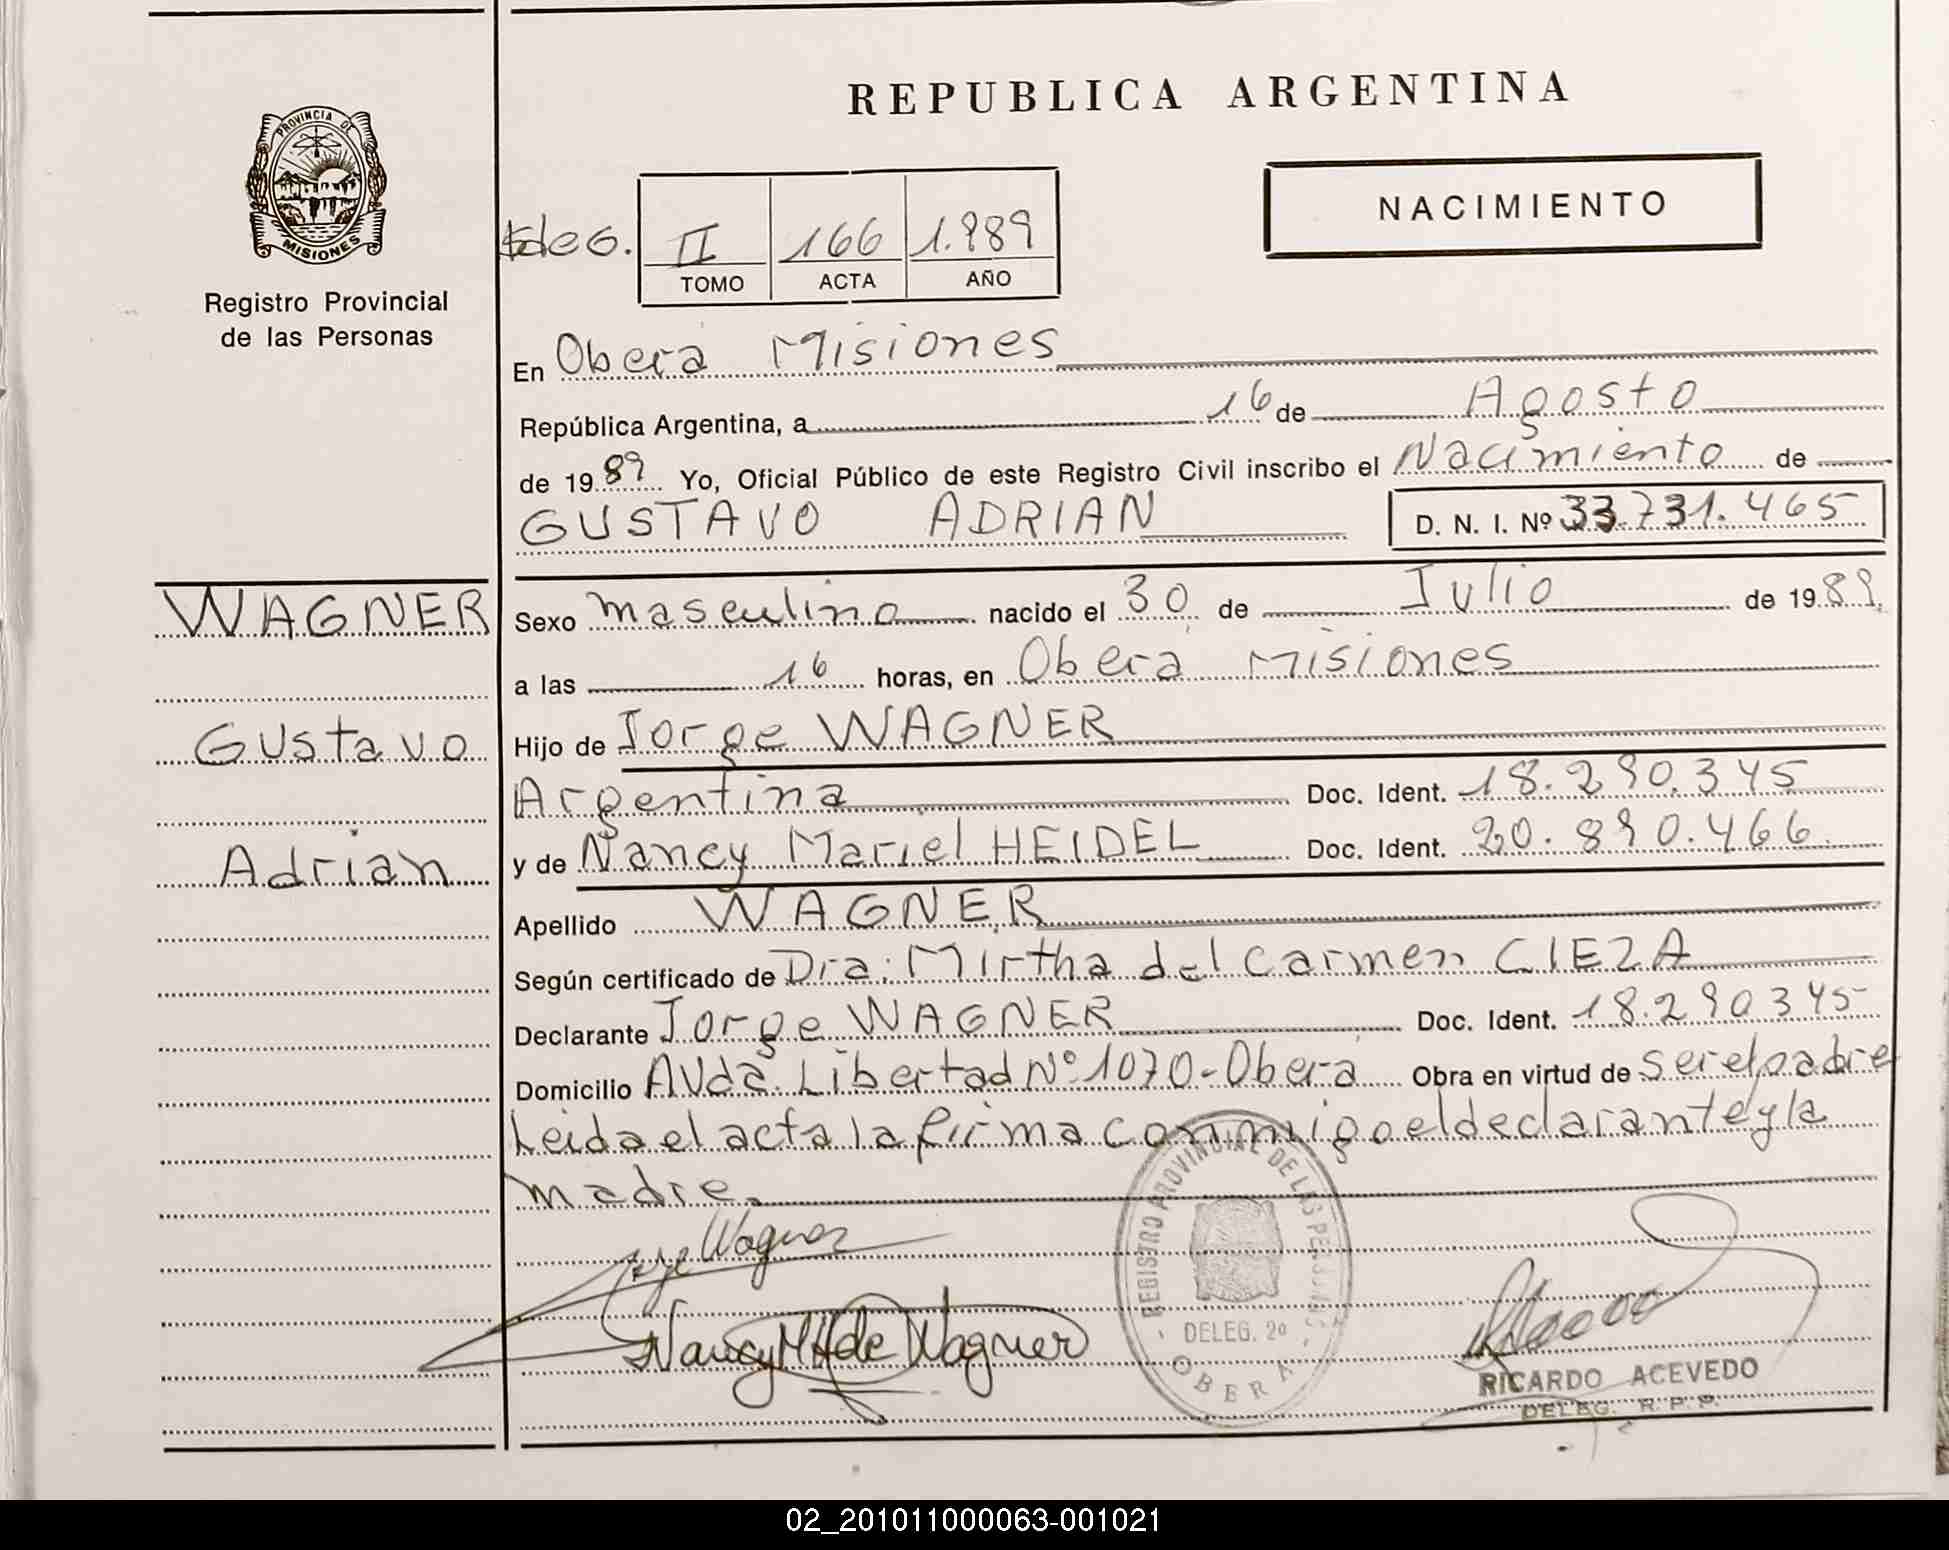 REPUBLICA ARGENTINA
PROVINCIA DE
MISIONES
Registro Provincial
de las Personas
NACIMIENTO
II 166 1.989
TOMO ACTA AÑO
En Obera Misiones
República Argentina, a 16 de Agosto
de 1989 Yo, Oficial Público de este Registro Civil inscribo el Nacimiento de
GUSTAVO ADRIAN D. N. I. Nº 33.731.465
WAGNER
Gustavo
Adrian
Sexo masculino nacido el 30 de Julio de 1989.
a las 16 horas, en Obera Misiones
Hijo de Jorge WAGNER
Argentina Doc. Ident. 18.290.345
y de Nancy Mariel HEIDEL Doc. Ident. 20.890.466.
Apellido WAGNER
Según certificado de Dra: Mirtha del Carmen CIEZA
Declarante Jorge WAGNER Doc. Ident. 18.290345
Domicilio AVda. Libertad Nº 1070-Obera Obra en virtud de ser el padre
Leida el acta la firma conmigo el declarante y la
madre.
Jorge Wagner
Nancy M H de Wagner
REGISTRO PROVINCIAL DE LAS PERSONAS
DELEG. 2º
OBERA
RICARDO ACEVEDO
DELEG. R. P. P.
02_201011000063-001021